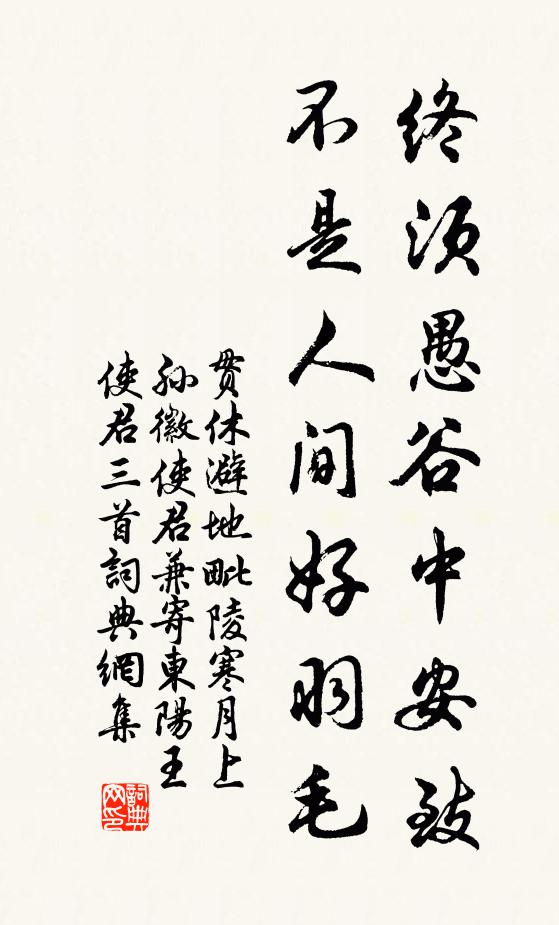 終須愚谷中安致
不是人间好羽毛
贯休避地毗陵寒月上
孙徽使君兼寄東陽王
使君三首詞典網集
詞典
网印